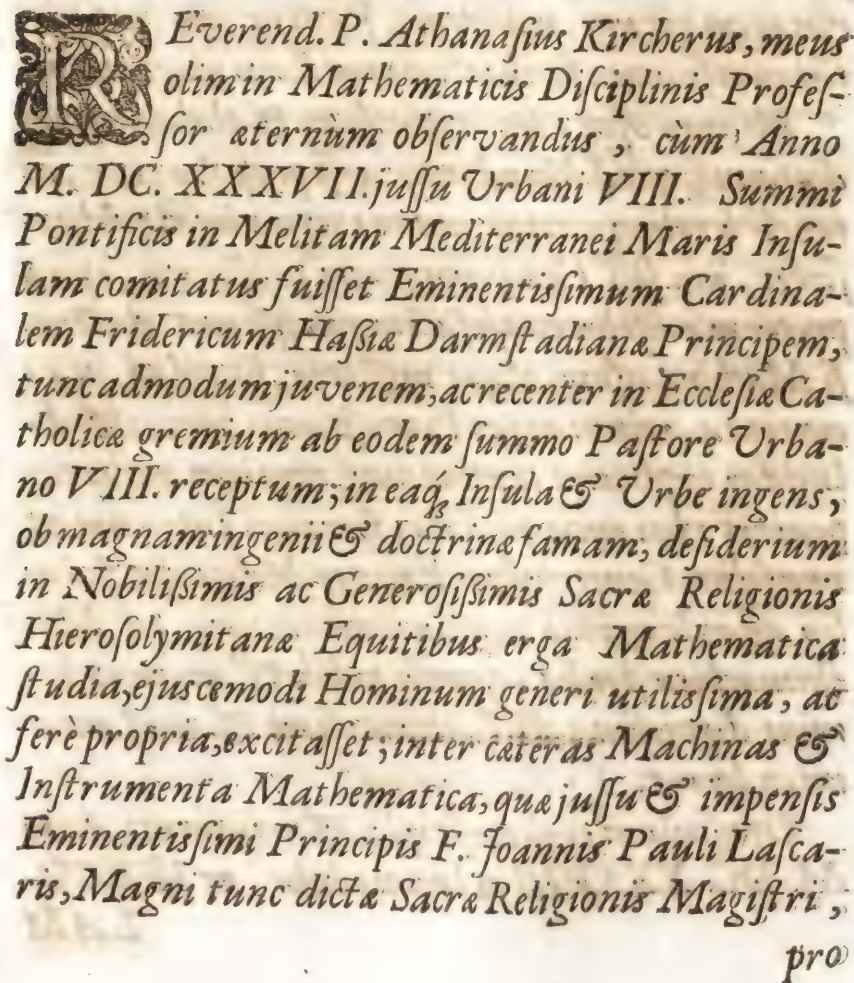 REverend. P. Athanaſius Kircherus, meus
olim in Mathematicis Diſciplinis Profeſ-
ſor æternùm obſervandus, cùm Anno
M. DC. XXXVII. juſſu Urbani VIII. Summi
Pontificis in Melitam Mediterranei Maris Inſu-
lam comitatus fuiſſet Eminentisſimum Cardina-
lem Fridericum Haſsiæ Darmſtadianæ Principem,
tunc admodum juvenem, ac recenter in Eccleſiæ Ca-
tholicæ gremium ab eodem ſummo Paſtore Urba-
no VIII. receptum; in eaq́; Inſula & Urbe ingens,
ob magnam ingenii & doctrinæ famam, deſiderium
in Nobiliſsimis ac Generoſiſsimis Sacræ Religionis
Hieroſolymitanæ Equitibus erga Mathematica
ſtudia, ejuscemodi Hominum generi utilisſima, ac
ferè propria, excitaſſet; inter cæteras Machinas &
Inſtrumenta Mathematica, quæ juſſu & impenſis
Eminentisſimi Principis F. Joannis Pauli Laſca-
ris, Magni tunc dictæ Sacræ Religionis Magiſtri,
pro